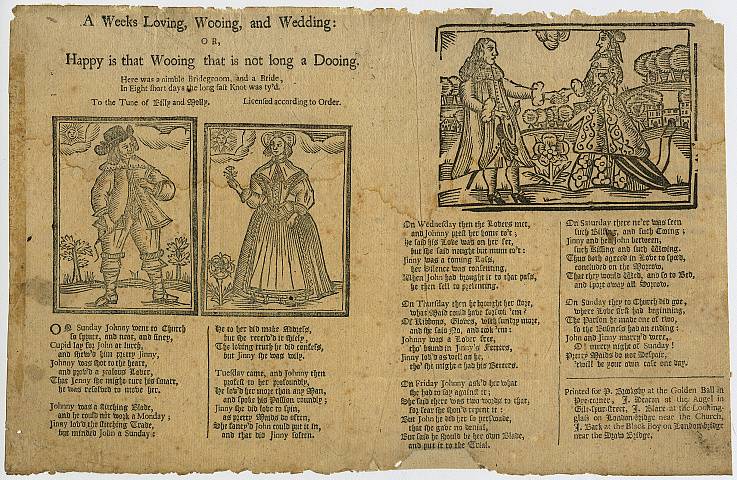 A Weeks Loving, Wooing, and Wedding:
OR,
Happy is that Wooing that is not long a Dooing.
Here was a nimble Bridegroom, and a Bride,
In Eight short days the long fast Knot was ty'd.
To the Tune of Billy and Molly. Licensed according to Order.
ON Sunday Johnny went to Church
so spruce, and neat, and finey,
Cupid lay for John at lurch,
and shew'd him pretty Jinny,
Johnny was shot to the heart,
and prov'd a zealous Lover,
That Jenny she might cure his smart,
he was resolved to move her.
Johnny was a stitching Blade,
and he could not work a Monday;
Jinny lov'd the stitching Trade,
but minded John a Sunday:
He to her did make Address,
but she receiv'd it shiely,
The loving truth he did confess,
but Jinny she was wily.
Tuesday came, and Johnny then
protest to her profoundly,
He lov'd her more than any Man,
and spoke his Passion roundly;
Jinny she did love to spin,
as pretty Maids do often,
She fancy'd John could put it in,
and that did Jinny soften.
On Wednesday then the Lovers met,
and Johnny prest her home to't;
He said his Love was on her set,
but she said nought but mum to't:
Jinny was a coming Lass,
her silence was consenting,
When John had brought it to that pass,
he then fell to presenting.
On Thursday then he brought her store,
what Maid could have forborn 'em?
Of Ribbons, Gloves, with sundry more,
and she said No, and took 'em:
Johnny was a Lover free,
tho' bound in Jinny's Fetters,
Jinny lov'd as well as he,
tho' she might a had his Betters.
On Friday Johnny ask'd her what
she had to say against it;
She said there was two words to that,
for fear she shou'd repent it:
But John he did her so perswade,
that she gave no denial,
But said he should be her own Blade,
and put it to the Trial.
On Saturday there ne'er was seen
such Billing, and such Cooing;
Jinny and her John between,
such Billing and such Wooing.
Thus both agreed in Love to speed,
concluded on the Morrow,
That they would Wed, and so to Bed,
and spare away all Sorrow.
On Sunday they to Church did goe,
where Love first had beginning,
The Parson he made one of two,
so the Business had an ending:
John and Jinny marry'd were,
O! merry night of Sunday!
Pretty Maids do not Despair,
'twill be your own case one day.
Printed for P. Brooksby at the Golden Ball in
Pye-corner, J. Deacon at the Angel in
Gilt-spur-street, J. Blare at the Looking-
glass on London-bridge near the Church,
J. Back at the Black Boy on London-bridge
near the Draw Bridge.